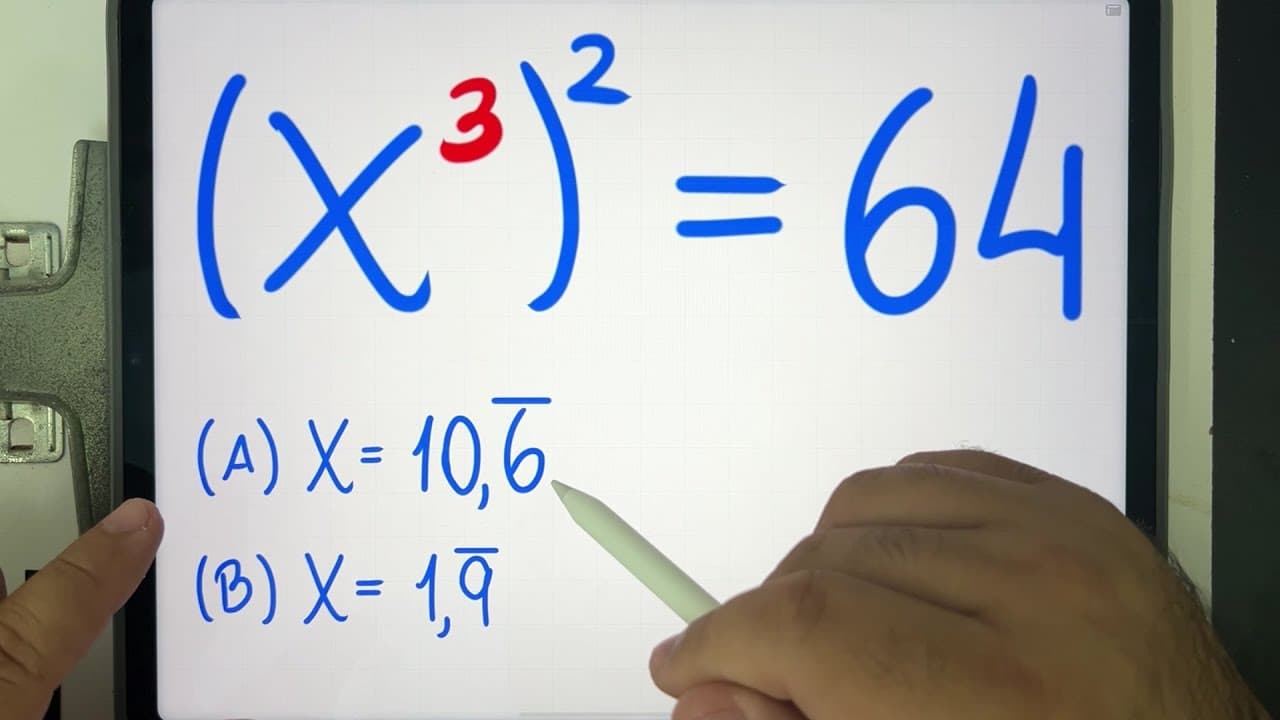 (X³)² = 64
(A) X = 10,6̅
(B) X = 1,9̅